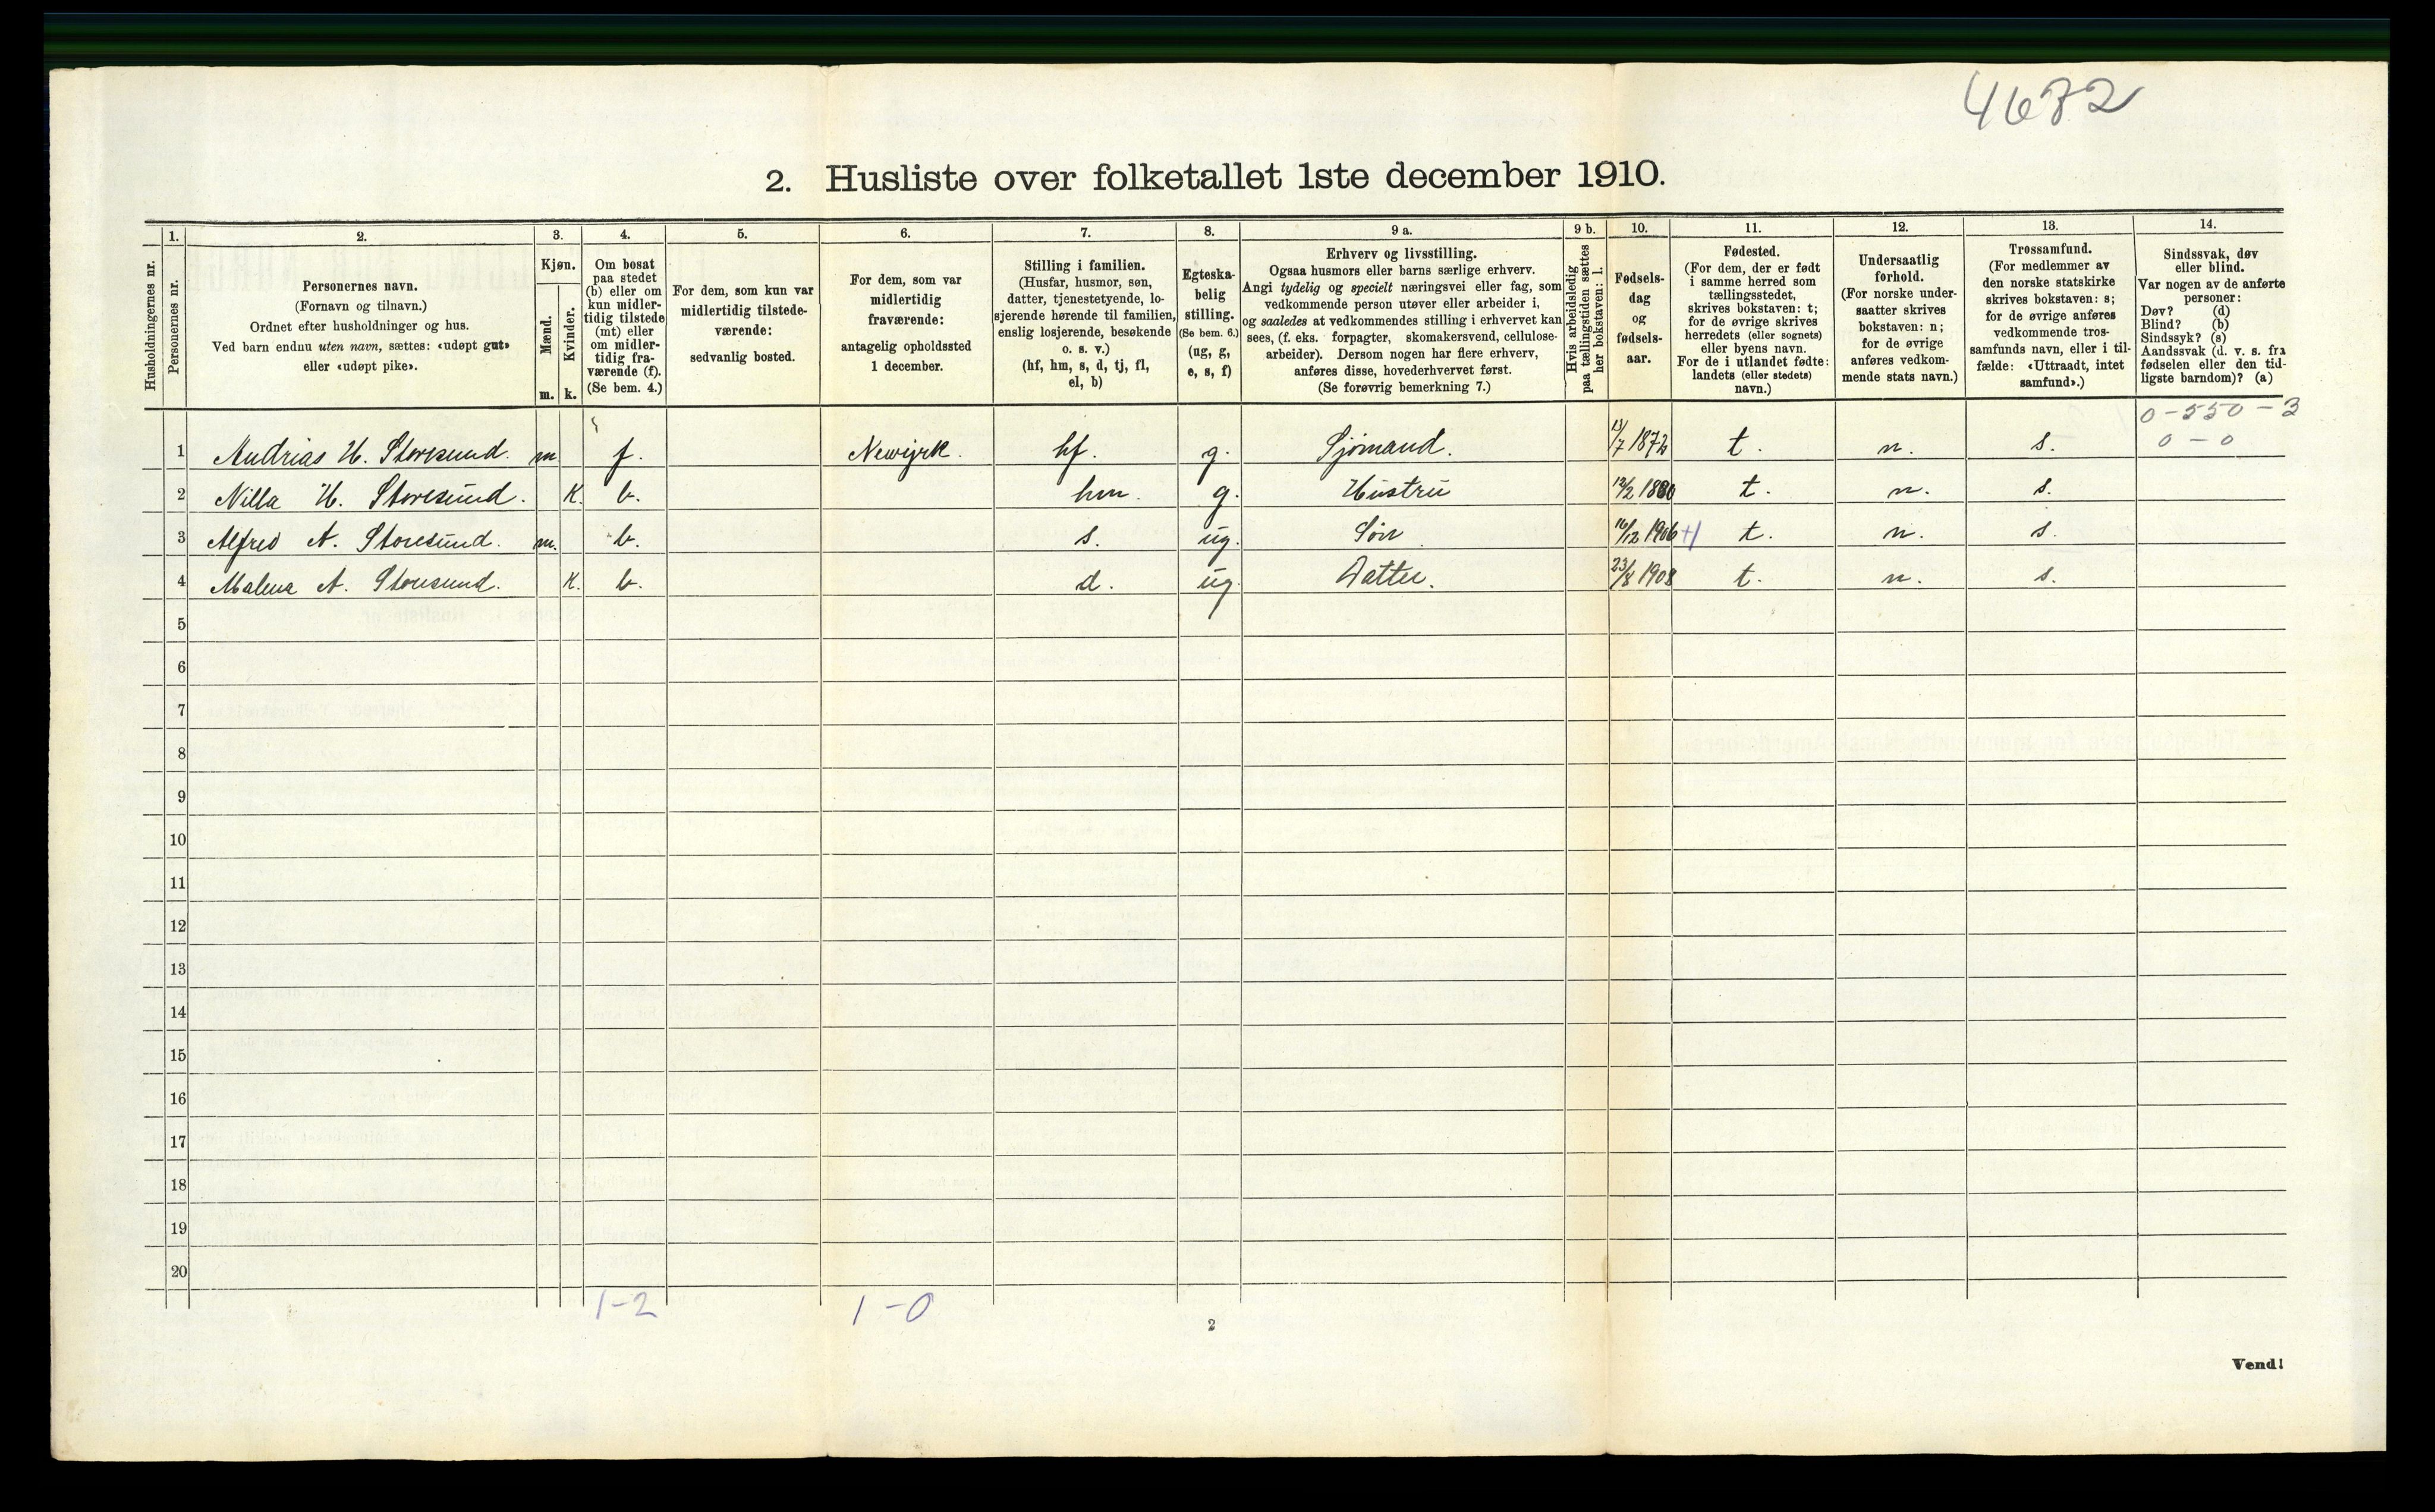 4672
2. Husliste over folketallet 1ste december 1910.
Husholdningernes nr.
1. Personernes nr.
2. Personernes navn.
(Fornavn og tilnavn.)
Ordnet efter husholdninger og hus.
Ved barn endnu uten navn, sættes: «udøpt gut»
eller «udøpt pike».
3. Kjøn.
Mænd. m.
Kvinder. k.
4. Om bosat
paa stedet
(b) eller om
kun midler-
tidig tilstede
(mt) eller
om midler-
tidig fra-
værende (f).
(Se bem. 4.)
5. For dem, som kun var
midlertidig tilstede-
værende:
sedvanlig bosted.
6. For dem, som var
midlertidig
fraværende:
antagelig opholdssted
1 december.
7. Stilling i familien.
(Husfar, husmor, søn,
datter, tjenestetyende, lo-
sjerende hørende til familien,
enslig losjerende, besøkende
o. s. v.)
(hf, hm, s, d, tj, fl,
el, b)
8. Egteska-
belig
stilling.
(Se bem. 6.)
(ug, g,
e, s, f)
9 a. Erhverv og livsstilling.
Ogsaa husmors eller barns særlige erhverv.
Angi tydelig og specielt næringsvei eller fag, som
vedkommende person utøver eller arbeider i,
og saaledes at vedkommendes stilling i erhvervet kan
sees, (f. eks. forpagter, skomakersvend, cellulose-
arbeider). Dersom nogen har flere erhverv,
anføres disse, hovederhvervet først.
(Se forøvrig bemerkning 7.)
9 b. Hvis arbeidsledig
paa tællingstiden sættes
her bokstaven: l.
10. Fødsels-
dag
og
fødsels-
aar.
11. Fødested.
(For dem, der er født
i samme herred som
tællingsstedet,
skrives bokstaven: t;
for de øvrige skrives
herredets (eller sognets)
eller byens navn.
For de i utlandet fødte:
landets (eller stedets)
navn.)
12. Undersaatlig
forhold.
(For norske under-
saatter skrives
bokstaven: n;
for de øvrige
anføres vedkom-
mende stats navn.)
13. Trossamfund.
(For medlemmer av
den norske statskirke
skrives bokstaven: s;
for de øvrige anføres
vedkommende tros-
samfunds navn, eller i til-
fælde: «Uttraadt, intet
samfund».)
14. Sindssvak, døv
eller blind.
Var nogen av de anførte
personer:
Døv? (d)
Blind? (b)
Sindssyk? (s)
Aandssvak (d. v. s. fra
fødselen eller den tid-
ligste barndom)? (a)
0-550-3
0-0
1 Andrias H. Storesund. m f. Newyrk. hf. g. Sjømand. 13/7 1872 t. n. s.
2 Nilla H. Storesund. K. b. hm. g. Hustru 12/2 1880 t. n. s.
3 Alfred A. Storesund. m. b. s. ug. Søn 16/12 1906 t. n. s.
4 Malena A. Storesund. K. b. d. ug. Datter. 23/8 1908 t. n. s.
5
6
7
8
9
10
11
12
13
14
15
16
17
18
19
20
1-2 1-0
2
Vend!